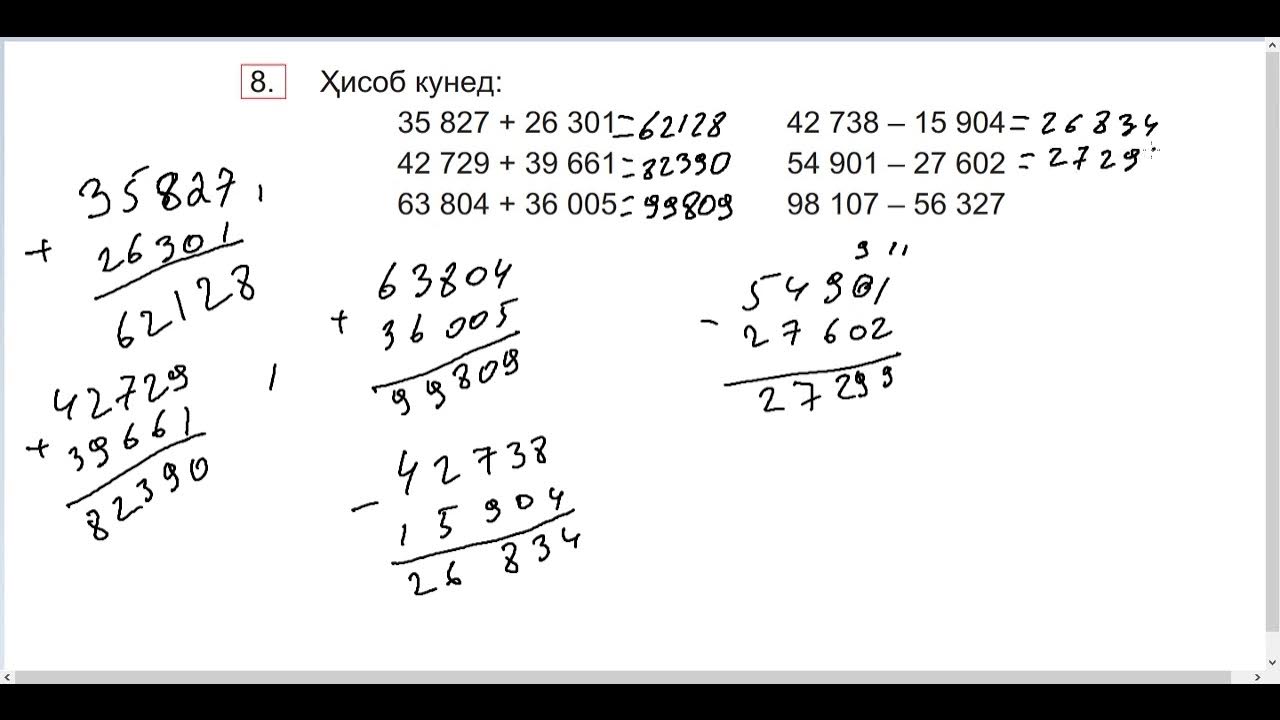 8. Ҳисоб кунед:
35 827 + 26 301 = 62128
42 729 + 39 661 = 82390
63 804 + 36 005 = 99809
42 738 – 15 904 = 26834
54 901 – 27 602 = 2729
98 107 – 56 327
35827 1
+ 26301
62128
42729 1
+ 39661
82390
63804
+ 36005
99809
42738
- 15904
26834
9 11
54901
- 27602
27299